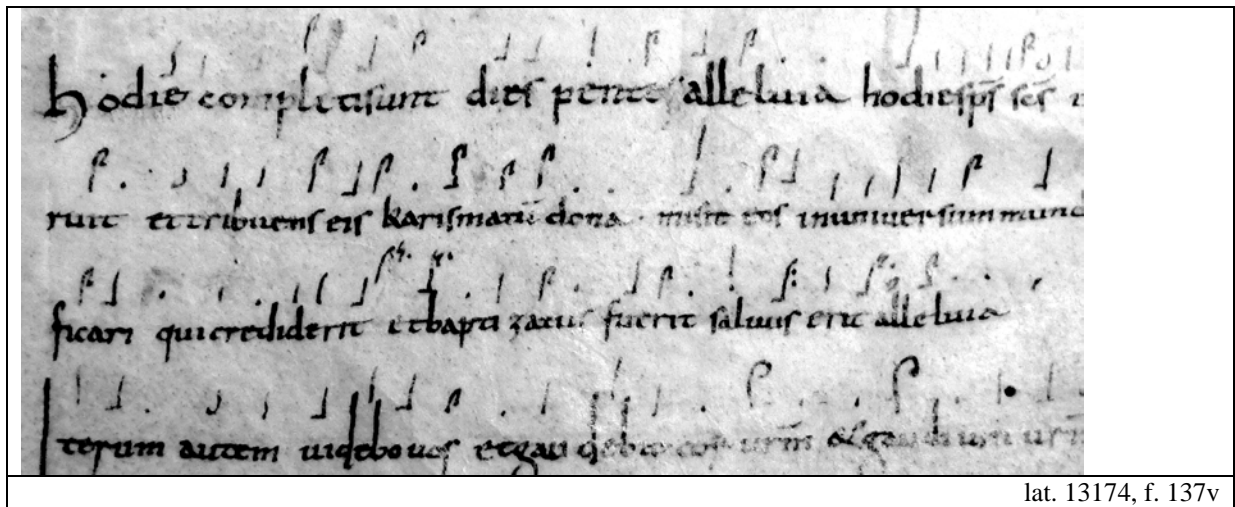 hodie completi sunt dies pentes alleluia hodie sps scs
ruit et tribuens eis karismatū dona misit eos in uniuersum mund
ficari qui crediderit et baptizatus fuerit saluus erit alleluia
Iterum autem uidebo uos et gaudebit cor urm & gaudium
lat. 13174, f. 137v